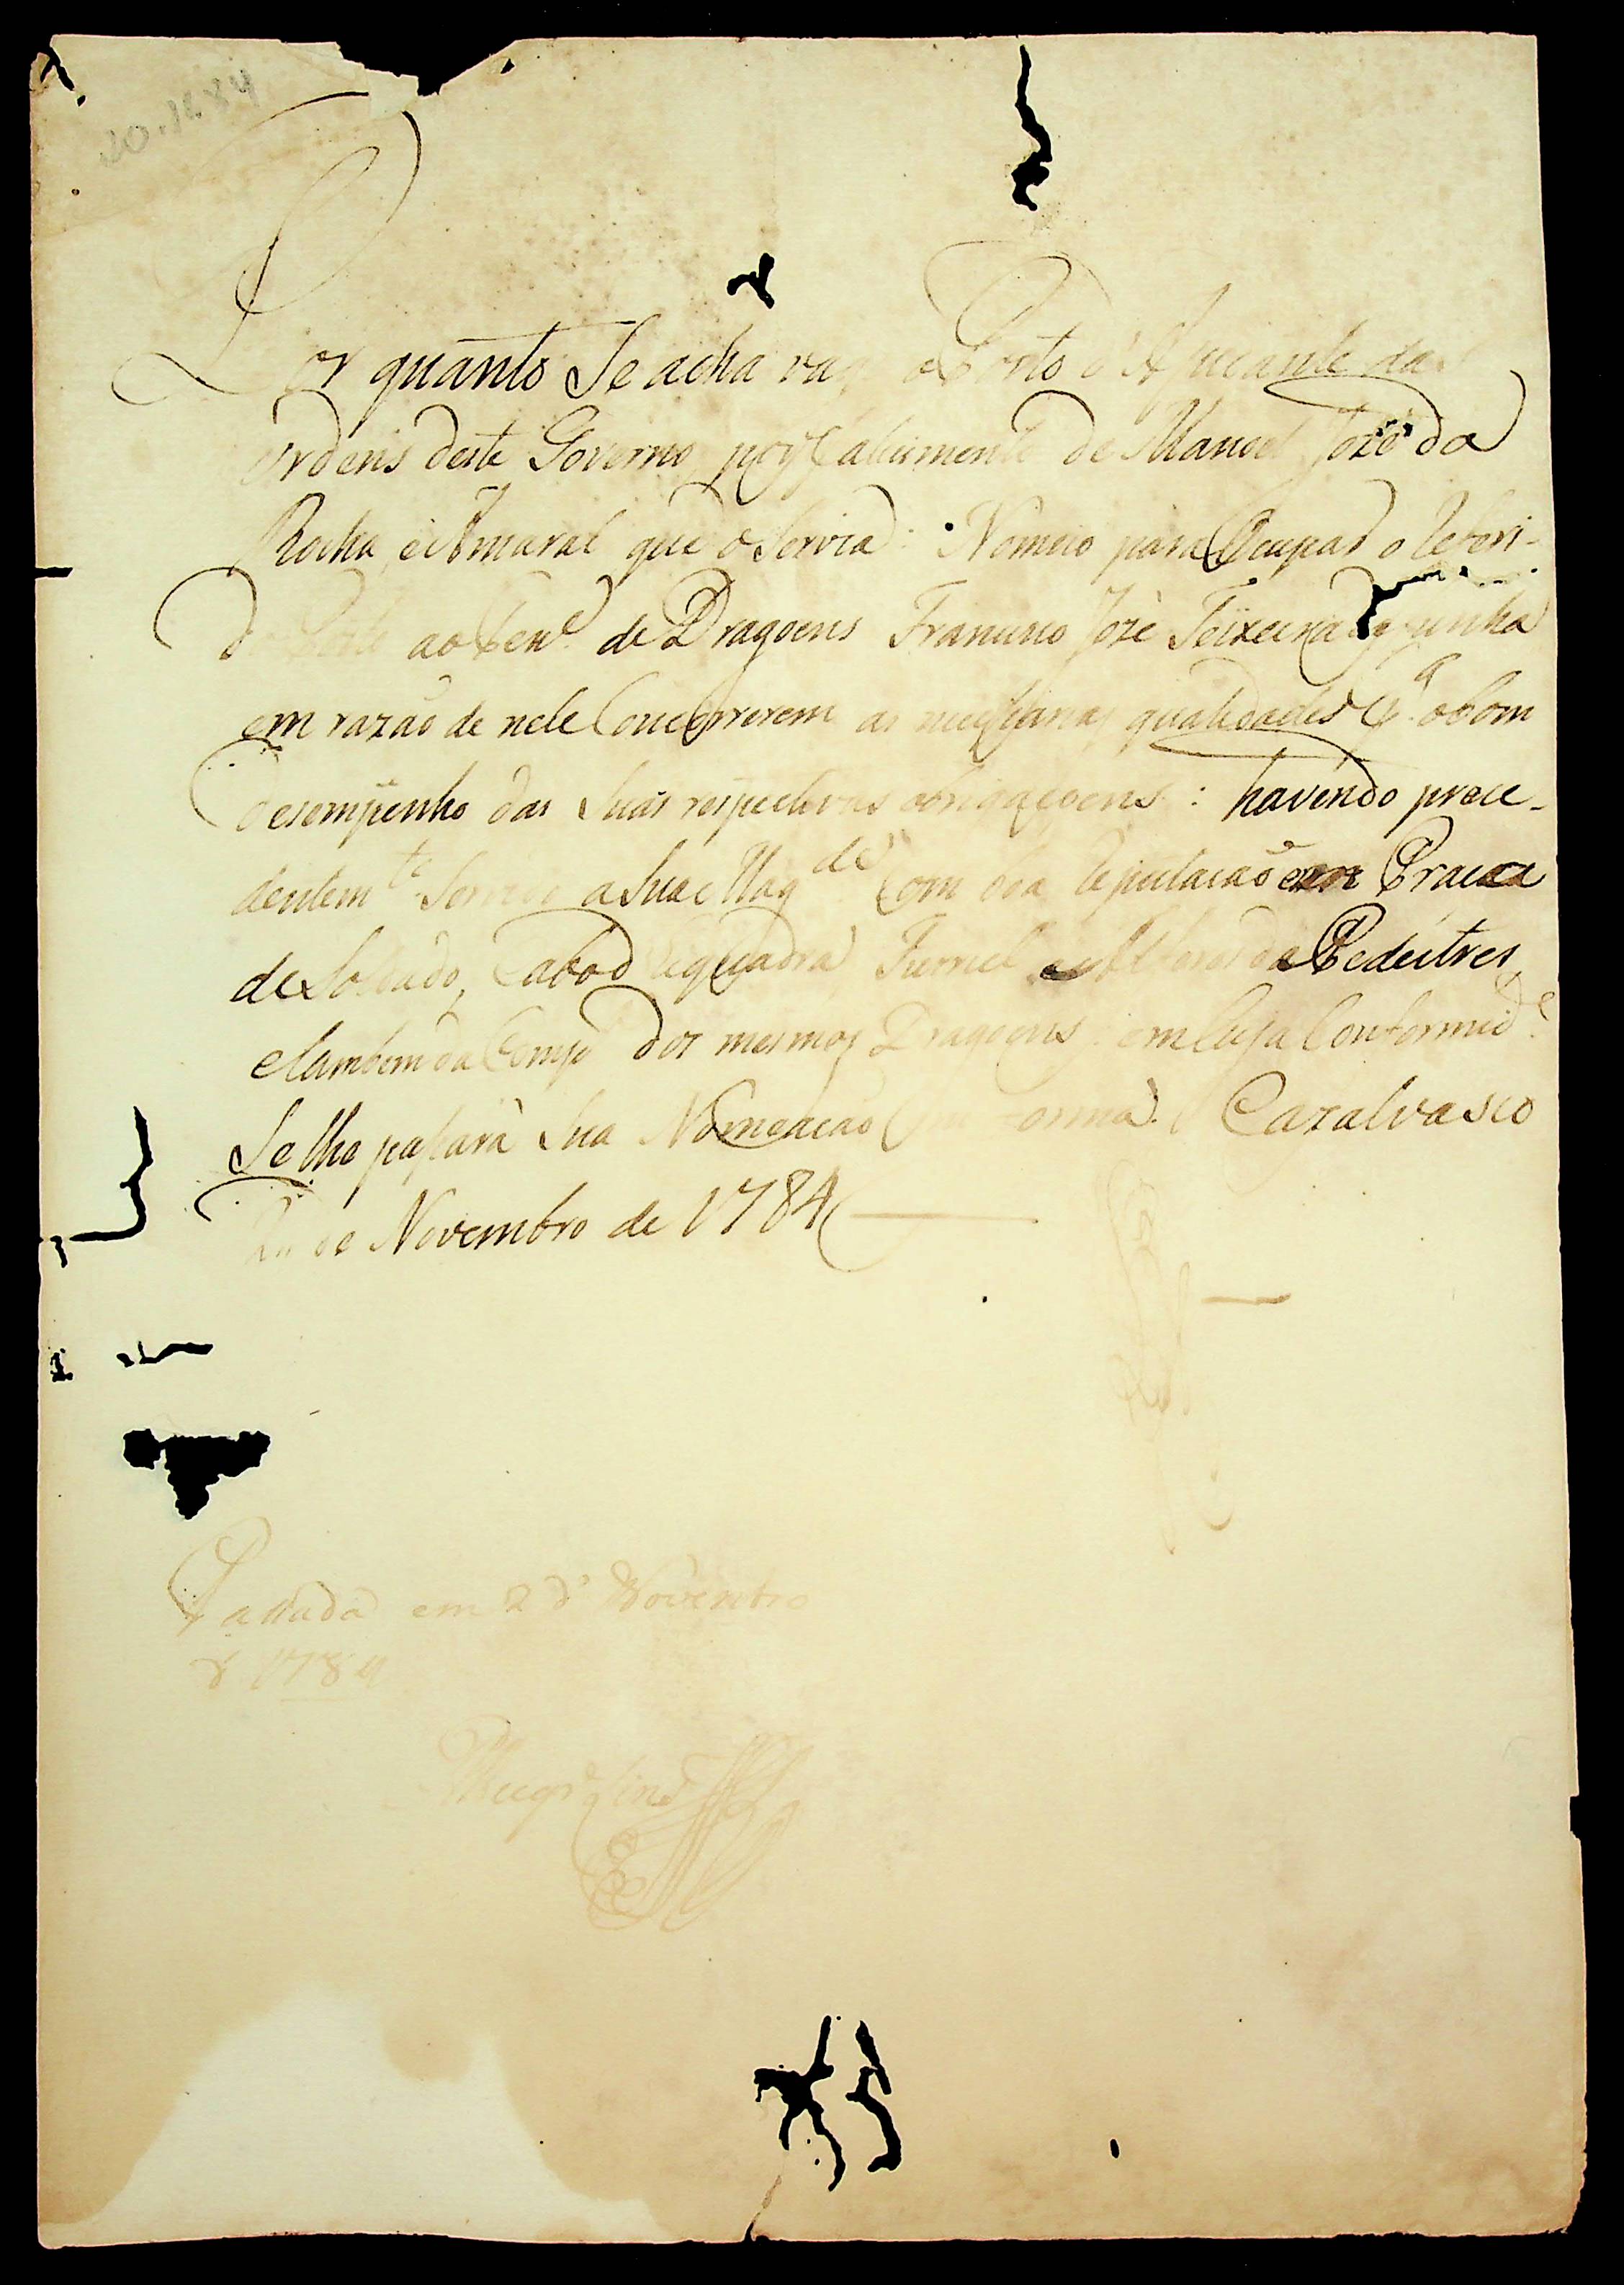 Por quanto Se acha vag o Posto d'Ajudante das
Ordens deste Governo, por falecimento de Manoel Jozé da
Rocha, e Amaral que o Servia: Nomeio para Ocupar o referi-
do Posto ao Ten.e de Dragoens Francisco Jozé Teixeira
em razaõ de nele Concorrerem as necessarias qualidades p.a o bom
desempenho das Suas respectivas obrigaçoens: havendo prece-
dentem.te Servido a Sua Mag.de Com boa reputaçaõ em Praça
de Soldado, Cabo d'esquadra, Furriel, e Alferes da Pedestres,
e tambem da Comp.a dos mesmos Dragoens: em Cuja Conformid.e
Se lhe passará Sua Nomeaçaõ em forma. Cazalvasco
de Novembro de 1784
Passada em 2 d' Novembro
d 1784